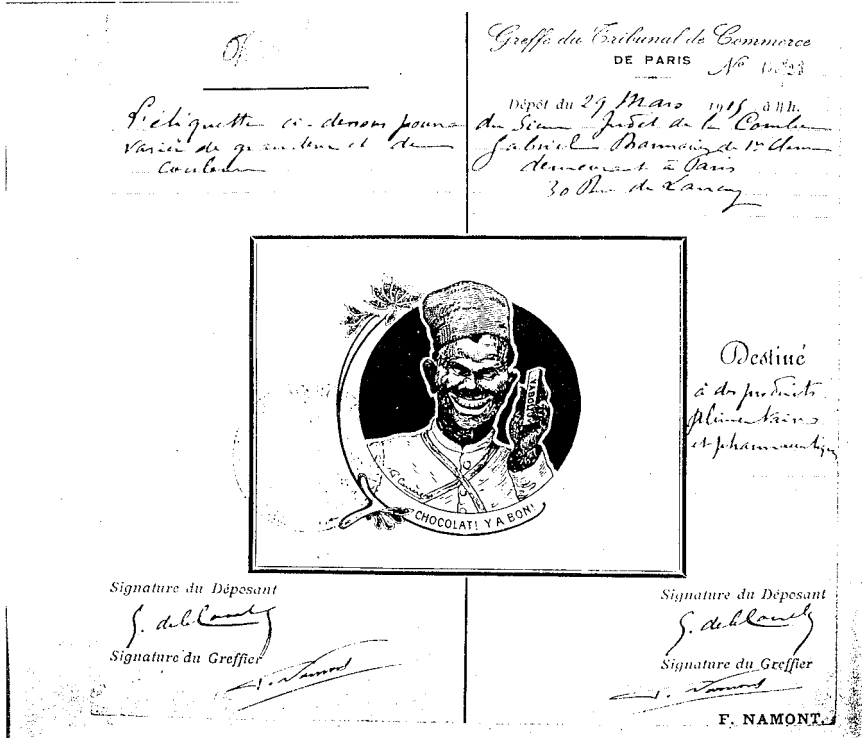 L'étiquette ci-dessous pourra
varier de grandeur et de
couleur
Greffe du Tribunal de Commerce
DE PARIS
No
Dépôt du 29 Mars 1915 à 4h.
du Sieur Judet de la Combe
Gabriel Pharmacien de 1re Classe
demeurant à Paris
30 Rue de Lancry
YABON
CHOCOLAT! Y A BON!
Destiné
à des produits
alimentaires
et pharmaceutiques
Signature du Déposant
G. de la Combe
Signature du Greffier
F. Namont
Signature du Déposant
G. de la Combe
Signature du Greffier
F. Namont
F. NAMONT.